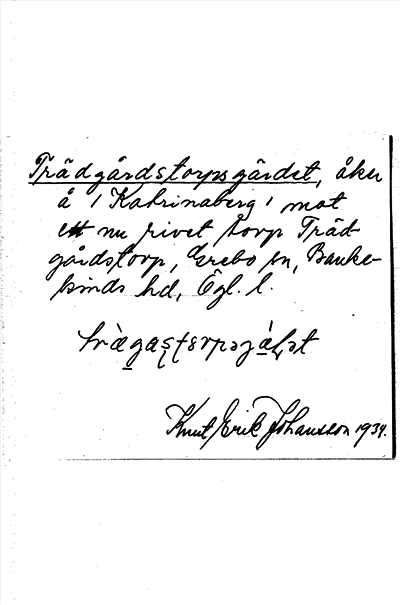 Trädgårdstorpsgärdet, åker
å 1 Katrinaberg 1 mot
ett nu rivet torp Träd-
gårdstorp, Grebo sn, Banke-
kinds hd, Ögl. l.
Knut Erik Johansson 1934.